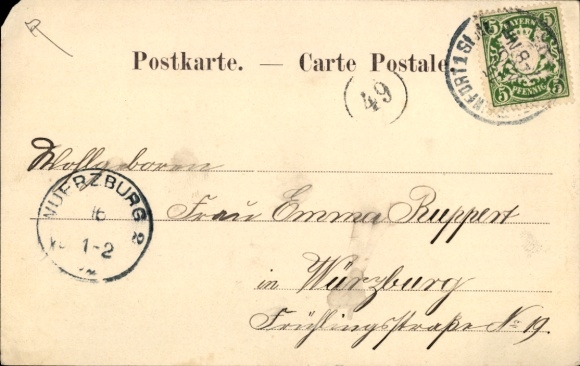 Postkarte. — Carte Postale
BAYERN
5 5
5 PFENNIG 5
49
Wohlgeboren
WUERZBURG 2
16
1-2
Frau Emma Ruppert
in Würzburg
Frühlingsstraße No 19.